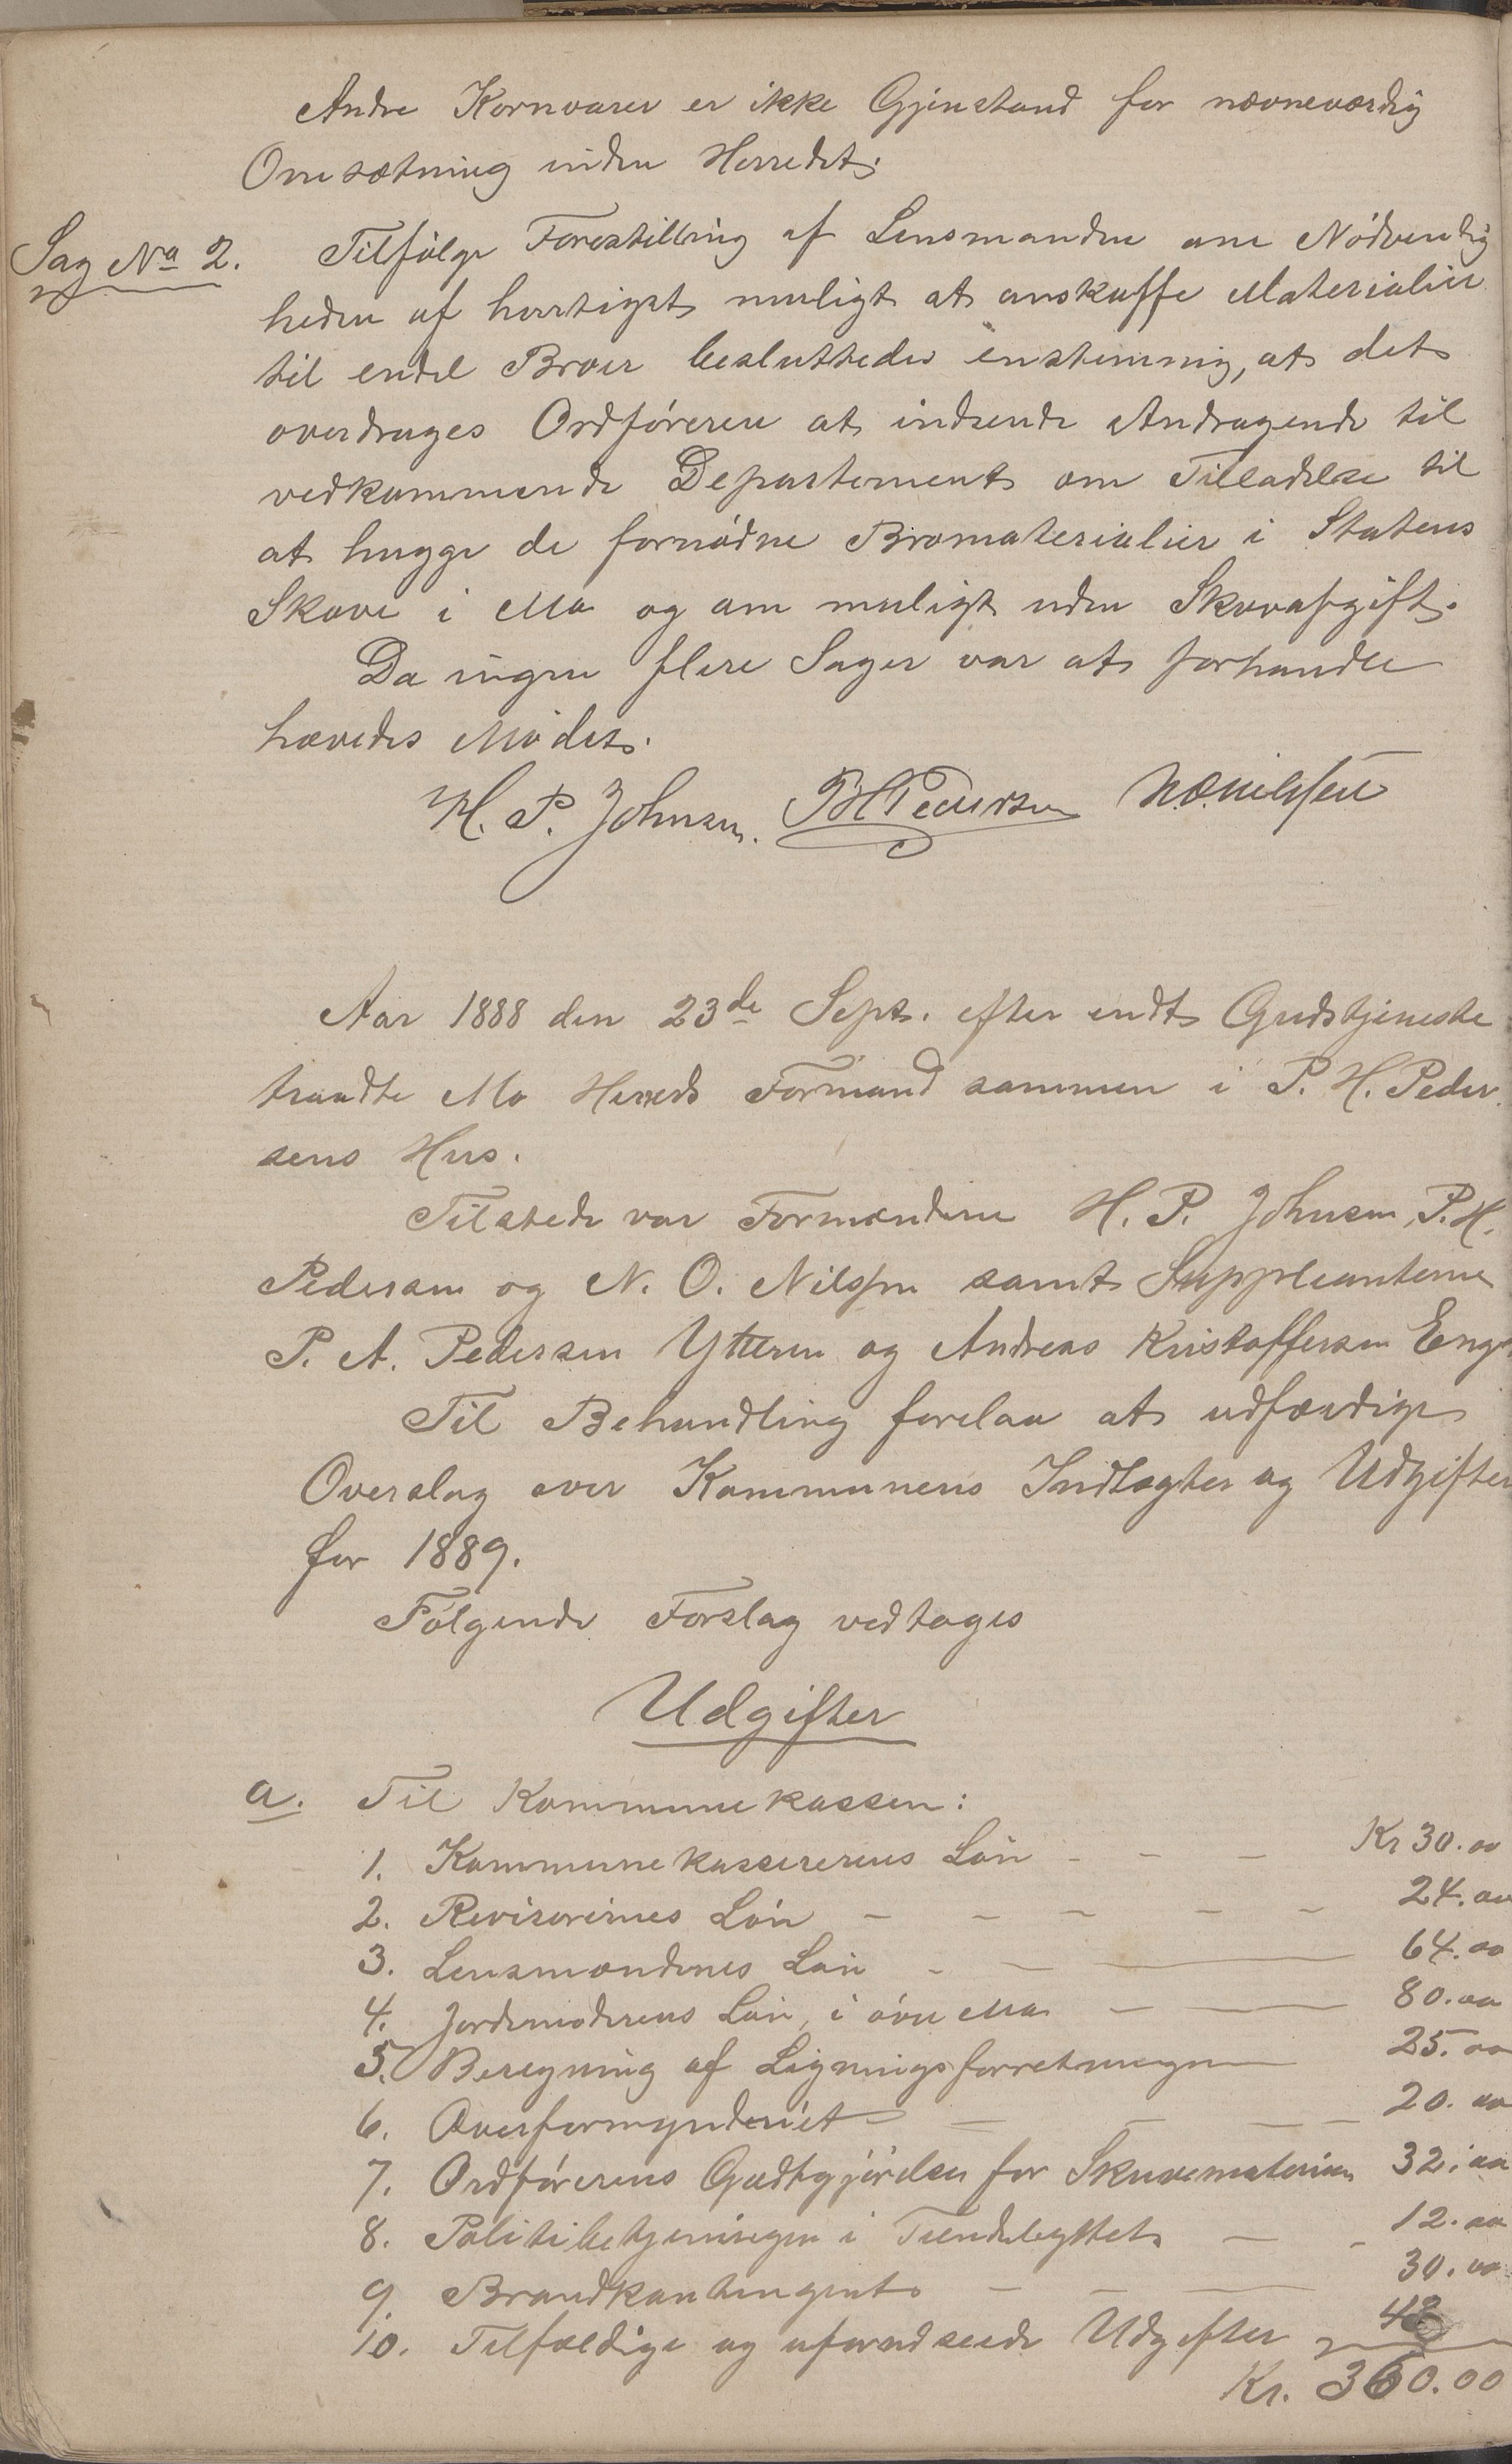 Andre Kornvarer er ikke Gjenstand for nævneværdig
Omsætning inden Herredet.
Sag No 2. Tilfølge Forestilling af Lensmanden om Nødvendig
heden af hurtigst muligt at anskaffe Materialier
til endel Broer besluttedes enstemmig, at det
overdrages Ordføreren at indsende Andragende til
vedkommende Departement om Tilladelse til
at hugge de fornødne Bromaterialier i Statens
Skove i Mo og om muligt uden Skovafgift.
Da ingen flere Sager var at forhandle
hævedes Mødet.
H. P. Johnsen. P H Pedersen N. O. Nilssen
Aar 1888 den 23de Sept. efter endt Gudstjeneste
traadte Mo Herreds Formænd sammen i P. H. Peder
sens Hus.
Tilstede var Formændene H. P. Johnsen, P. H.
Pedersen og N. O. Nilssen samt Suppleanterne
P. A. Pedersen Ytteren og Andreas Kristoffersen Enge
Til Behandling forelaa at udfærdige
Overslag over Kommunens Indtægter og Udgifter
for 1889.
Følgende Forslag vedtoges
Udgifter
a. Til Kommunekassen:
1. Kommunekassererens Løn - - - Kr 30.00
2. Revisorernes Løn - - - - - 24.00
3. Lensmændenes Løn - - - 64.00
4. Jordemoderens Løn, i øvre Mo - - 80.00
5. Beregning af Ligningsforretningen - 25.00
6. Overformynderiet - - - - - 20.00
7. Ordførerens Godtgjørelse for Skrivematerialer 32.00
8. Politibetjeningen i - - 12.00
9. Brandkontingent - - - 30.00
10. Tilfældige og uforudseede Udgifter 43
Kr. 360.00